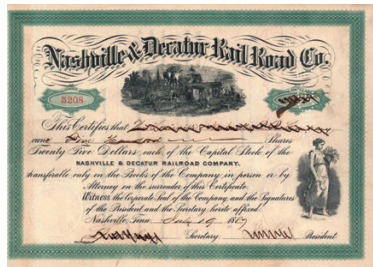 Nashville & Decatur Rail Road Co.
5208
This Certifies that
Shares
Twenty Five Dollars each, of the Capital Stock of the
NASHVILLE & DECATUR RAILROAD COMPANY,
transferable only on the Books of the Company in person or by
Attorney on the surrender of this Certificate.
Witness the corporate Seal of the Company, and the Signatures
of the President and the Secretary hereto affixed.
Nashville, Tenn. 19 18
Secretary President